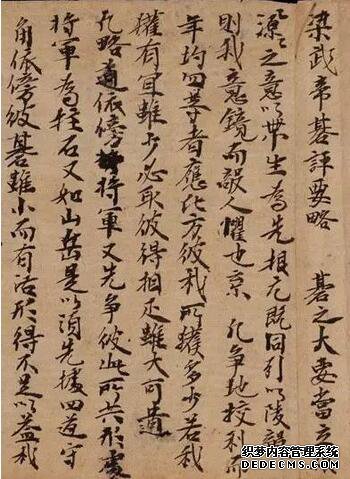 梁武帝碁評要略 碁之大要當立
源之意以帶生為先根元既固引以陵
則我意鏡而敵人懼也 凡爭地校利而
年均四等者應比方彼我所獲多少若我
獲有宜雖少必取彼得相足雖大可遺
凡略道依傍將軍又先爭彼此所共形處
將軍為柱石又如山岳是以須先據四道守
角依傍彼碁雖小而有活形得不足以益我
织梦内容管理系统
DEDECMS.COM